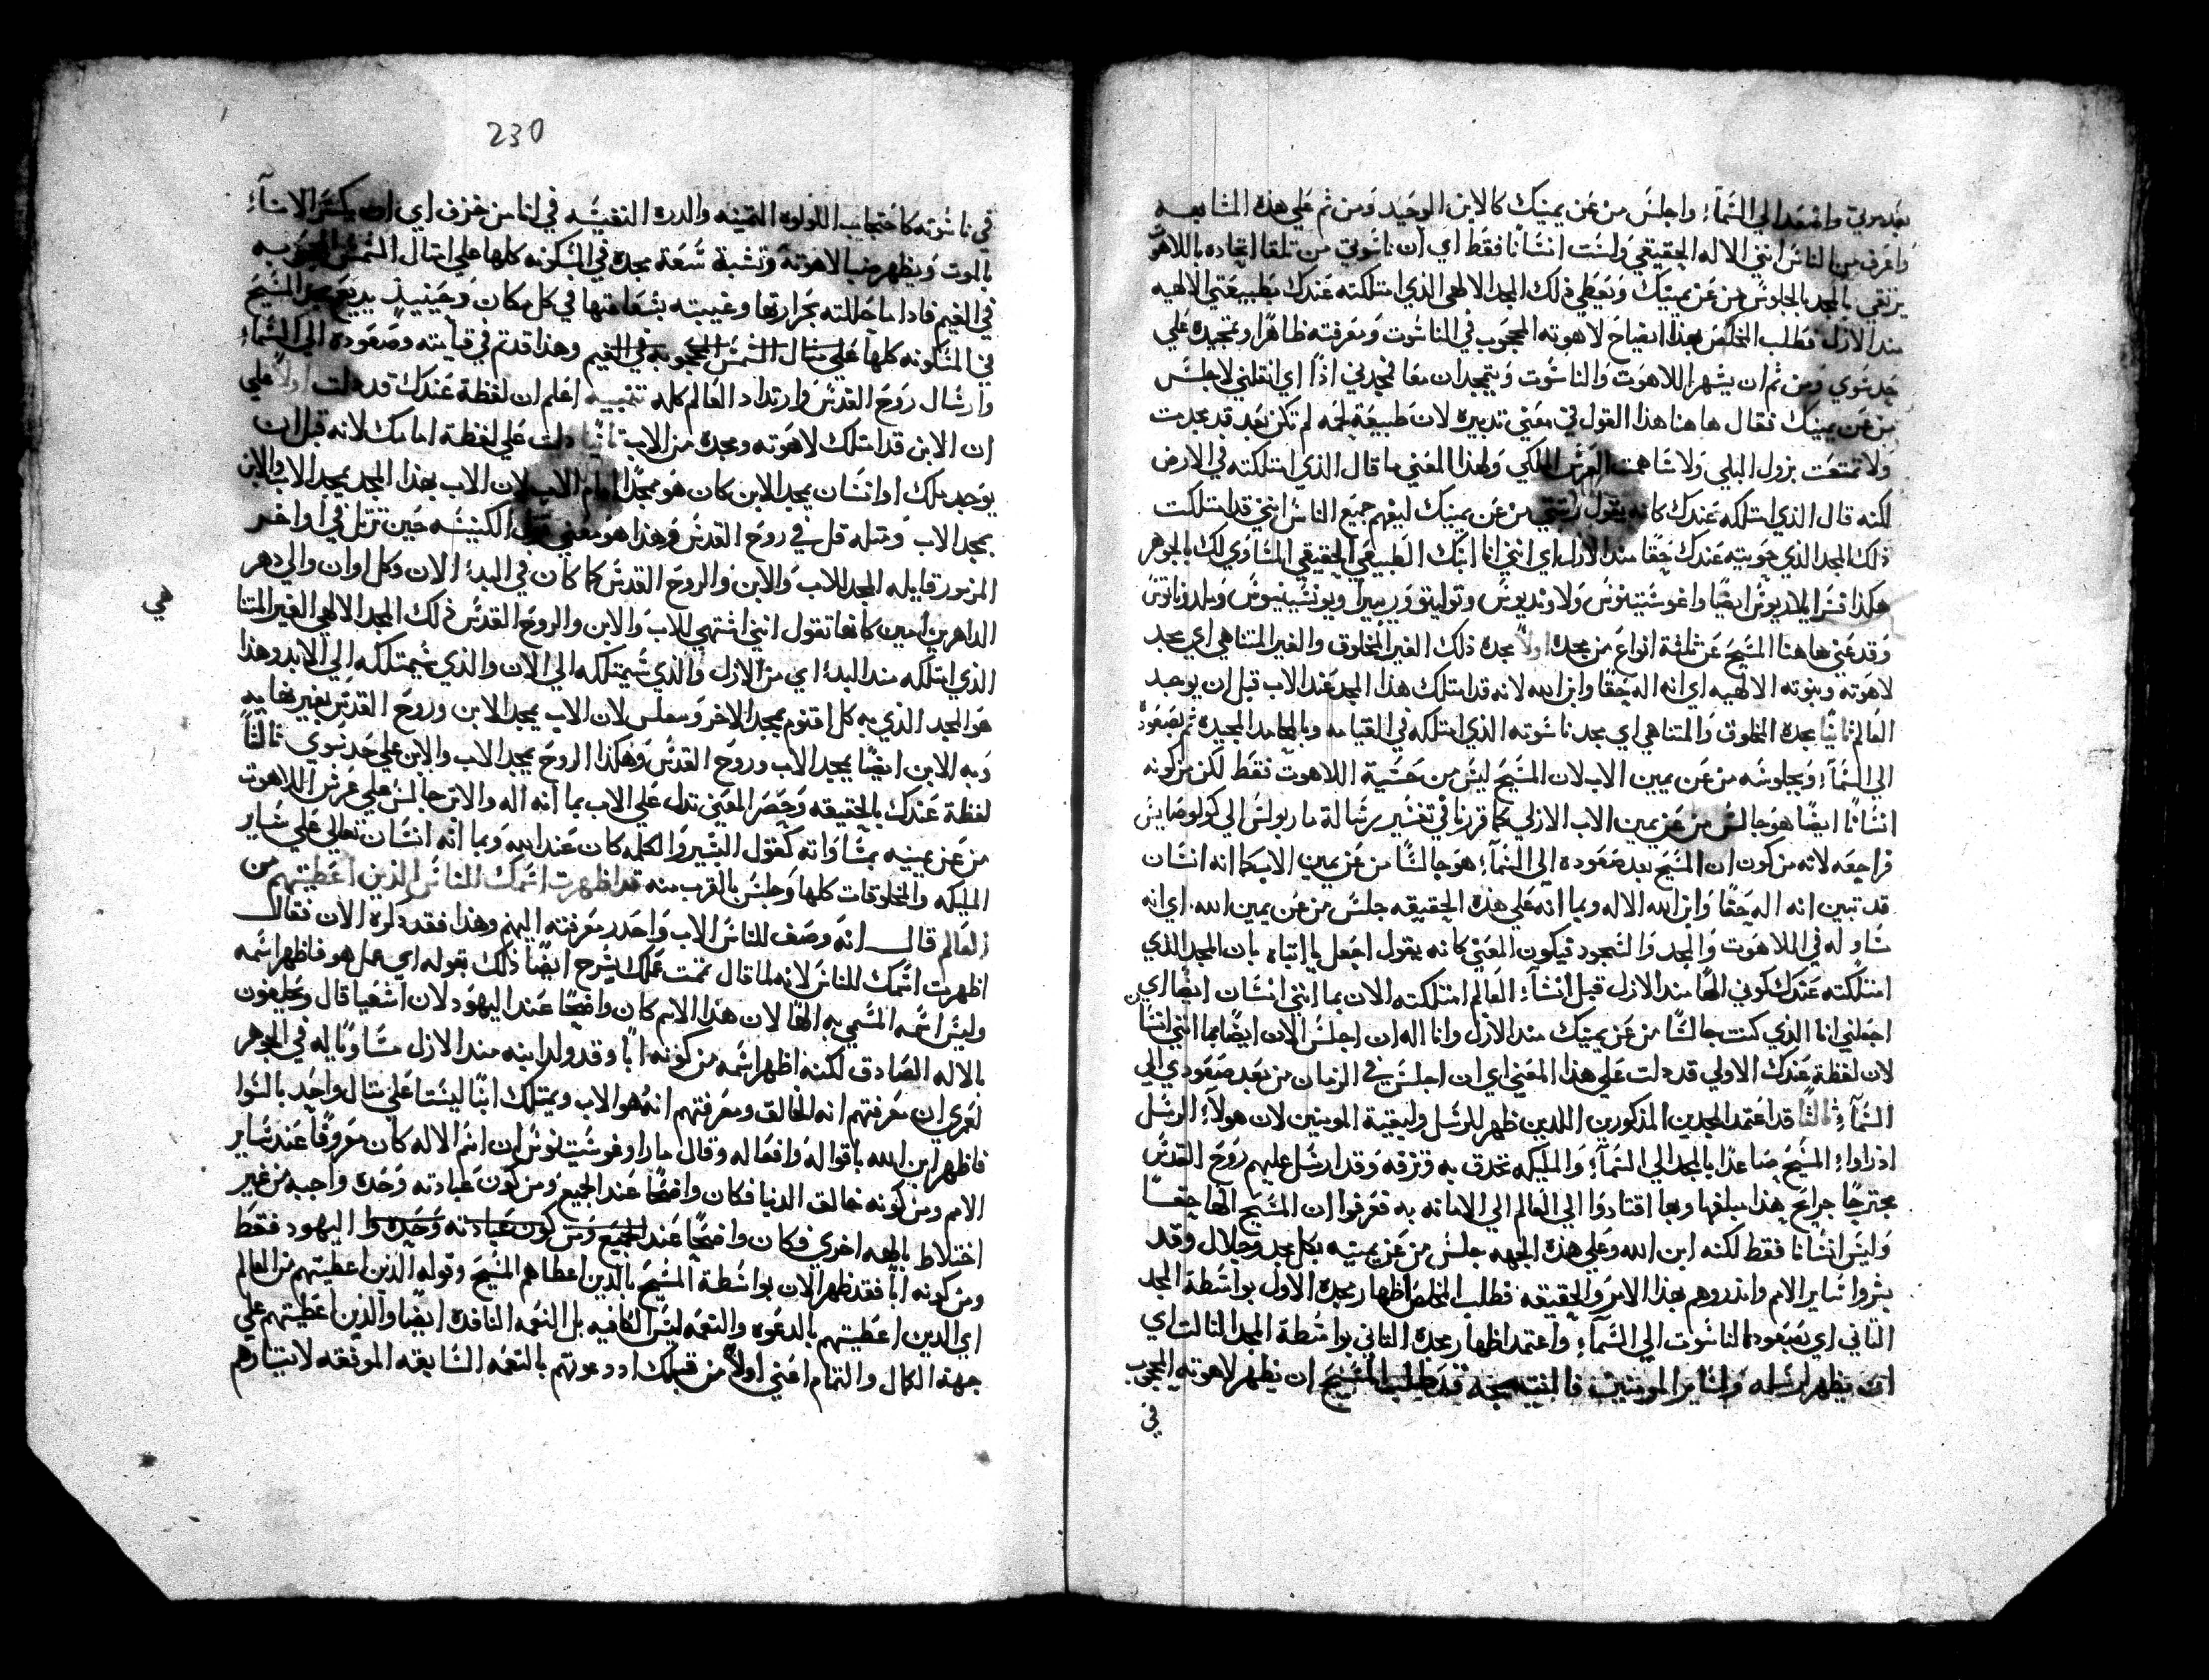 بعد موتي واصعد الي السمآء واجلس من عن يمينك كالابن الوحيد ومن ثم علي هذه المشابهه
واعرف من الناس انني الاله الحقيقي ولست انسانا فقط اي ان ناسوتي من تلقا اتحاده باللاهوت
يرتقي بالمجد بالجلوس من عن يمينك ويعطي ذلك المجد الالهي الذي امتلكته عندك بطبيعتي الالهيه
مند الازل فطلب المخلص بهذا ايضاح لاهوته المحجوب في الناسوت ومعرفته ظاهرا وتمجيده علي
حد سوي ومن ثم ان يشهر اللاهوت والناسوت ويتمجدان معا فمجدني اذا اي انقلني لاجلس
من عن يمينك فقال هاهنا هذا القول في معني تدبيره لان طبيعة لحمه لم تكن بعد قد مجدت
ولا تمتعت بزول البلي ولا شاهمت العرش الملكي ولهذا المعني ما قال الذي امتلكته في الارض
لكنه قال الذي امتلكه عندك كانه يقول رتبتي من عن يمينك ليفهم جميع الناس انني قد امتلكت
ذلك المجد الذي حويته عندك حقا مند الازل اي انني انا ابنك الطبيعي الحقيقي المساوي لك بالجوهر
هكذا فسر ايلاريوس ايضا واغوسطينوس ولاونديوس وتوليتو وريبيرا ويونسينيوس وملدوناتوس
وقد عني هاهنا المسيح عن ثلثة انواع من مجده اولا مجده ذلك الغير المخلوق والغير المتناهي اي مجد
لاهوته وبنوته الالهيه اي انه اله حقا وابن الله لانه قد امتلك هذا المجد عند الاب قبل ان يوجد
العالم ثانيا مجده المخلوق والمتناهي اي مجد ناسوته الذي امتلكه في القيامه وبالمحامد المجيده ثم بصعوده
الي السمآء وبجلوسه من عن يمين الاب لان المسيح ليس من حسية اللاهوت فقط لكن من كونه
انسانا ايضا هو جالس من عن يمين الاب الازلي كما قررنا في تفسير رسالة مار بولس الي كولوصايس
فراجعه لانه من كون ان المسيح بعد صعوده الي السمآء هو جالسا من عن يمين الاب كما انه انسان
قد تبين انه اله حقا وابن الله الاله وبما انه علي هذه الحقيقه جلس من عن يمين الله اي انه
ساو له في اللاهوت والمجد والسجود فيكون المعني كانه يقول اجعل يا ابتاه بان المجد الذي
امتلكته عندك كوني الها مند الازل قبل انشآء العالم امتلكته الان بما انني انسان ايضا اي
اجعلني انا الذي كنت جالسا من عن يمينك مند الازل وانا اله ان اجلس الان ايضا بما انني انسان
لان لفظة عندك الاولي قد دلت علي هذا المعني اي ان اجلس في الزمان من بعد صعودي الي
السمآء ثالثا قد اعتمد المجدين المذكورين اللدين ظهر للرسل ولبقية المومنين لان هولآء الرسل
اذ راوا المسيح صاعدا بالمجد الي السمآء والمليكه تحدق به وتزفه وقد ارسل عليهم روح القدس
مجترحا جرايح هذا مبلغها وبها اقتادوا الي العالم الي الامانه به فعرفوا ان المسيح الها حقـا
وليس انسانا فقط لكنه ابن الله وعلي هذه الجهه جلس من عن يمينه بكل مجد وجلال وقد
بشروا ساير الامم وانذروهم بهذا الامر والحقيقه فطلب المخلص اظهار مجده الاول بواسطة المجد
الثاني اي بصعود الناسوت الي السمآء واعتمد اظهار مجده الثاني بواسطة المجد الثالث اي
ان يظهر لرسله ولساير المومنين فالنتيجه قد طلب المسيح ان يظهر لاهوته المحجوب
في
230
في ناسوته كاحتجاب اللولوه التمينه والدره النفيسه في انا من خزف اي ان يكسر الانآء
بالموت ويظهر منه الاهوته وتشبه سعة مجده في المسكونه كلها علي امتال الشمس المحجوبه
في الغيم فادا ما حللته بحرارتها وغيبته بشعاعتها في كل مكان وحينيذ يديع مجد المسيح
في المسكونه كلها علي متال الشمس المحجوبه في الغيم وهذا قد تم في قيامته وصعوده الي السمآء
وارسال روح القدس وارتداد العالم كله تنبيه اعلم ان لفظة عندك قد دلت اولا علي
ان الابن قد امتلك لاهوته ومجده من الاب ثانيا دلت علي لفظة امامك لانه قبل ان
يوجد ملك او انسان يمجد الابن كان هو ممجدا امام الاب لان الاب بهذا المجد يمجد الاب والابن
يمجد الاب ومثله قل في روح القدس وهذا هو معني قول الكنيسه حين ترتل في اواخر
المزمور قايله المجد للاب والابن والروح القدس كما كان في البدء الان وكل اوان والي دهر
الداهرين امين كانها تقول انني اشتهي للاب والابن والروح القدس ذلك المجد الالهي الغير المتنا
هي
الذي امتلكه مند البدء اي من الازل والذي سيمتلكه الي الان والذي سيمتلكه الي الابد وهذا
هو المجد الذي به كل اقنوم يمجد الاخر وبعكس لان الاب يمجد الابن وروح القدس بغير نهايه
وبه الابن ايضا يمجد الاب وروح القدس وهكذا الروح يمجد الاب والابن علي حد سوي ثالثا
لفظة عندك بالحقيقه وحصر المعني تدل علي الاب بما انه اله والابن جالس علي عرش اللاهوت
من عن يمينه بمساواته كقول البشير والكلمه كان عند الله وبما انه انسان تعالي علي ساير
المليكه والمخلوقات كلها وجلس بالقرب منه قد اظهرت اسمك للناس الذين اعطيتهم من
العالم قال انه وصف للناس الاب واحدر معرفته اليهم وهذا فقد ذكره الان فقال
اظهرت اسمك للناس لانه لما قال تممت عملك يشرح ايضا ذلك بقوله اي عمل هو فاظهر اسمه
وليس اسمه المسمي به الها لان هذا الاسم كان واضحا عند اليهود لان اشعيا قال ويحلفون
بالاله الصادق لكنه اظهر اسمه من كونه ابا وقد ولد ابنه مند الازل مساويا له في الجوهر
لعمري ان معرفتهم انه الخالق ومعرفتهم انه هو الاب ويمتلك ابنا ليستا علي متال واحد بالسوا
فاظهر ابن الله باقواله وافعاله وقال مار اوغوسيتينوس ان اسم الاله كان معروفا عند ساير
الامم ومن كونه خالق الدنيا فكان واضحا عند الجميع ومن كون عبادته وحده واجبه من غير
اختلاط بالهه اخري فكان واضحا عند الجميع ومن كون عبادته وحده وا اليهود فقط
ومن كونه ابا فقد ظهر الان بواسطة المسيح بالذين اعطاهم المسيح وقوله الذين اعطيتهم من العالم
اي الدين اعطيتهم بالدعوه والنعمه ليس الكافيه بل النعمه النافده ايضا والذين اعطيتهم علي
جهة الكمال والتمام اعني اولا من قبلك اد دعوتهم بالنعمه السابقه الموفقه لانتيارهم